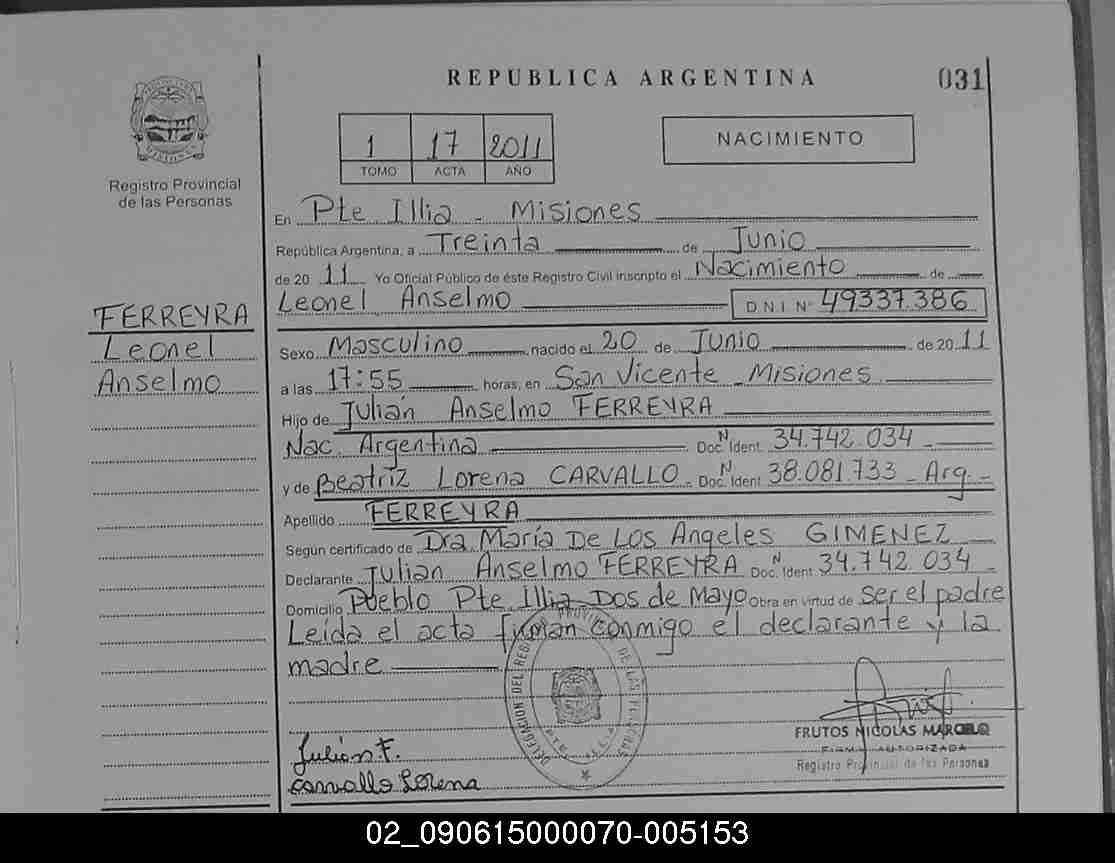 REPUBLICA ARGENTINA
031
1 17 2011
TOMO ACTA AÑO
NACIMIENTO
Registro Provincial
de las Personas
FERREYRA
Leonel
Anselmo
En Pte Illia - Misiones
República Argentina, a Treinta de Junio
de 20 11 Yo Oficial Público de éste Registro Civil inscripto el Nacimiento de
Leonel Anselmo D.N.I Nº 49337.386
Sexo Masculino nacido el 20 de Junio de 20 11
a las 17:55 horas, en San Vicente - Misiones
Hijo de Julián Anselmo FERREYRA
Nac. Argentina Doc. N Ident. 34.742.034 -
y de Beatríz Lorena CARVALLO - Doc. N Ident. 38.081.733 - Arg. -
Apellido FERREYRA
Según certificado de Dra. María De Los Angeles GIMENEZ
Declarante Julian Anselmo FERREYRA Doc. N Ident. 34.742.034 -
Domicilio Pueblo Pte. Illia Dos de Mayo Obra en virtud de ser el padre
Leída el acta firman conmigo el declarante y la
madre
DELEGACION DEL REG PROVINCIAL DE LAS PERSONAS
FRUTOS NICOLAS MARCELO
FIRMA AUTORIZADA
Registro Provincial de las Personas
Julián F.
Carvallo Lorena
02_090615000070-005153